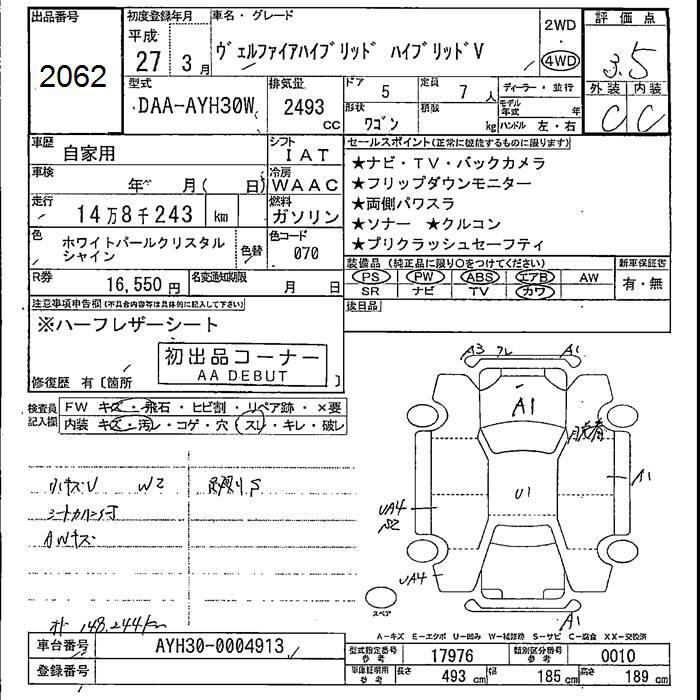 出品番号
2062
初度登録年月
平成
27 3月
車名・グレード
ヴェルファイアハイブリッド ハイブリッドV
2WD
・
4WD
評価点
3.5
外装 内装
C C
型式
DAA-AYH30W
排気量
2493
cc
ドア 5
定員 7 人
形状
ワゴン
積載
kg
ディーラー・並行
モデル年式 年
ハンドル 左・右
車歴
自家用
シフト
IAT
車検
年 月( 日)
冷房
WAAC
走行
14万8千243 km
燃料
ガソリン
色
ホワイトパールクリスタル
シャイン
色替
色コード
070
R券
16,550円
名変通知期限
月 日
セールスポイント(正常に機能するものに限ります)
★ナビ・TV・バックカメラ
★フリップダウンモニター
★両側パワスラ
★ソナー ★クルコン
★プリクラッシュセーフティ
装備品(純正品に限り○をつけてください)
PS PW ABS エアB AW
SR ナビ TV カワ
新車保証書
有・無
後日品
注意事項申告欄(不具合内容等は具体的に記入して下さい)
※ハーフレザーシート
初出品コーナー
AA DEBUT
修復歴 有〔箇所 〕
検査員
記入欄
FW キズ・飛石・ヒビ割・リペア跡・×要
内装 キズ・汚レ・コゲ・穴 スレ・キレ・破レ
小キズU W2
AWキズ
148,244km
A3 フレ A1
A1
U1
A1
UA4
S2
UA4
A1
スペア
A-キズ E-エクボ U-凹み W-補修跡 S-サビ C-腐食 XX-交換済
車台番号
AYH30-0004913
登録番号
型式指定番号
参考
17976
類別区分番号
参考
0010
車庫証明用
参考
長さ 493 cm
幅 185 cm
高さ 189 cm